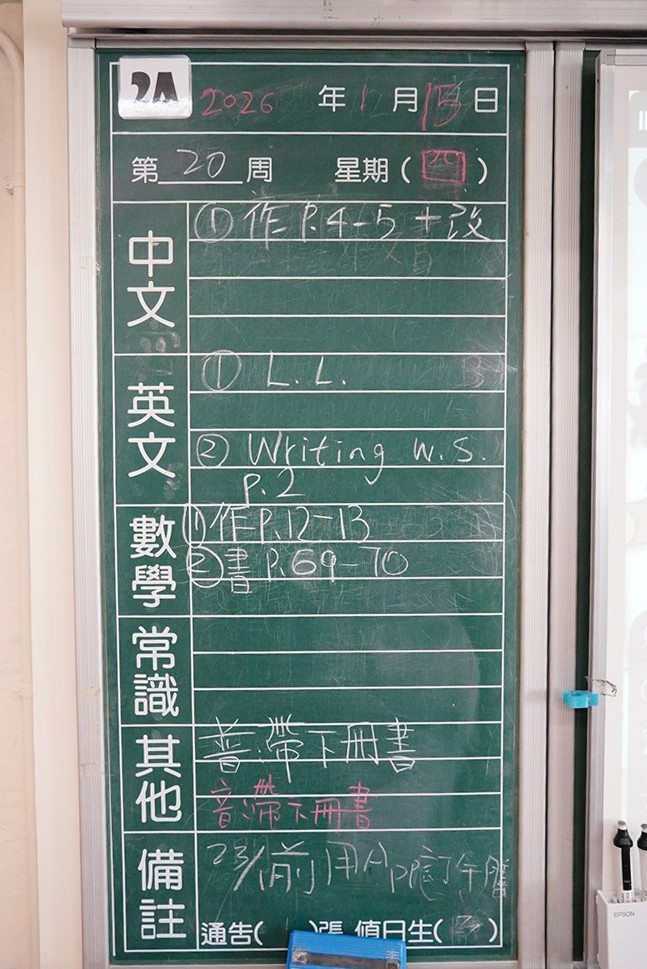 2A 2026 年 1 月 15 日
第 20 周 星期( 四 )
中文
① 作 P.4-5 + 改
英文
① L.L.
② Writing W.S.
P.2
數學
① 作 P.12-13
② 書 P.69-70
常識
其他
普:帶下冊書
音:帶下冊書
備註
23/1前用App訂午膳
通告( )張 值日生( )
EPSON